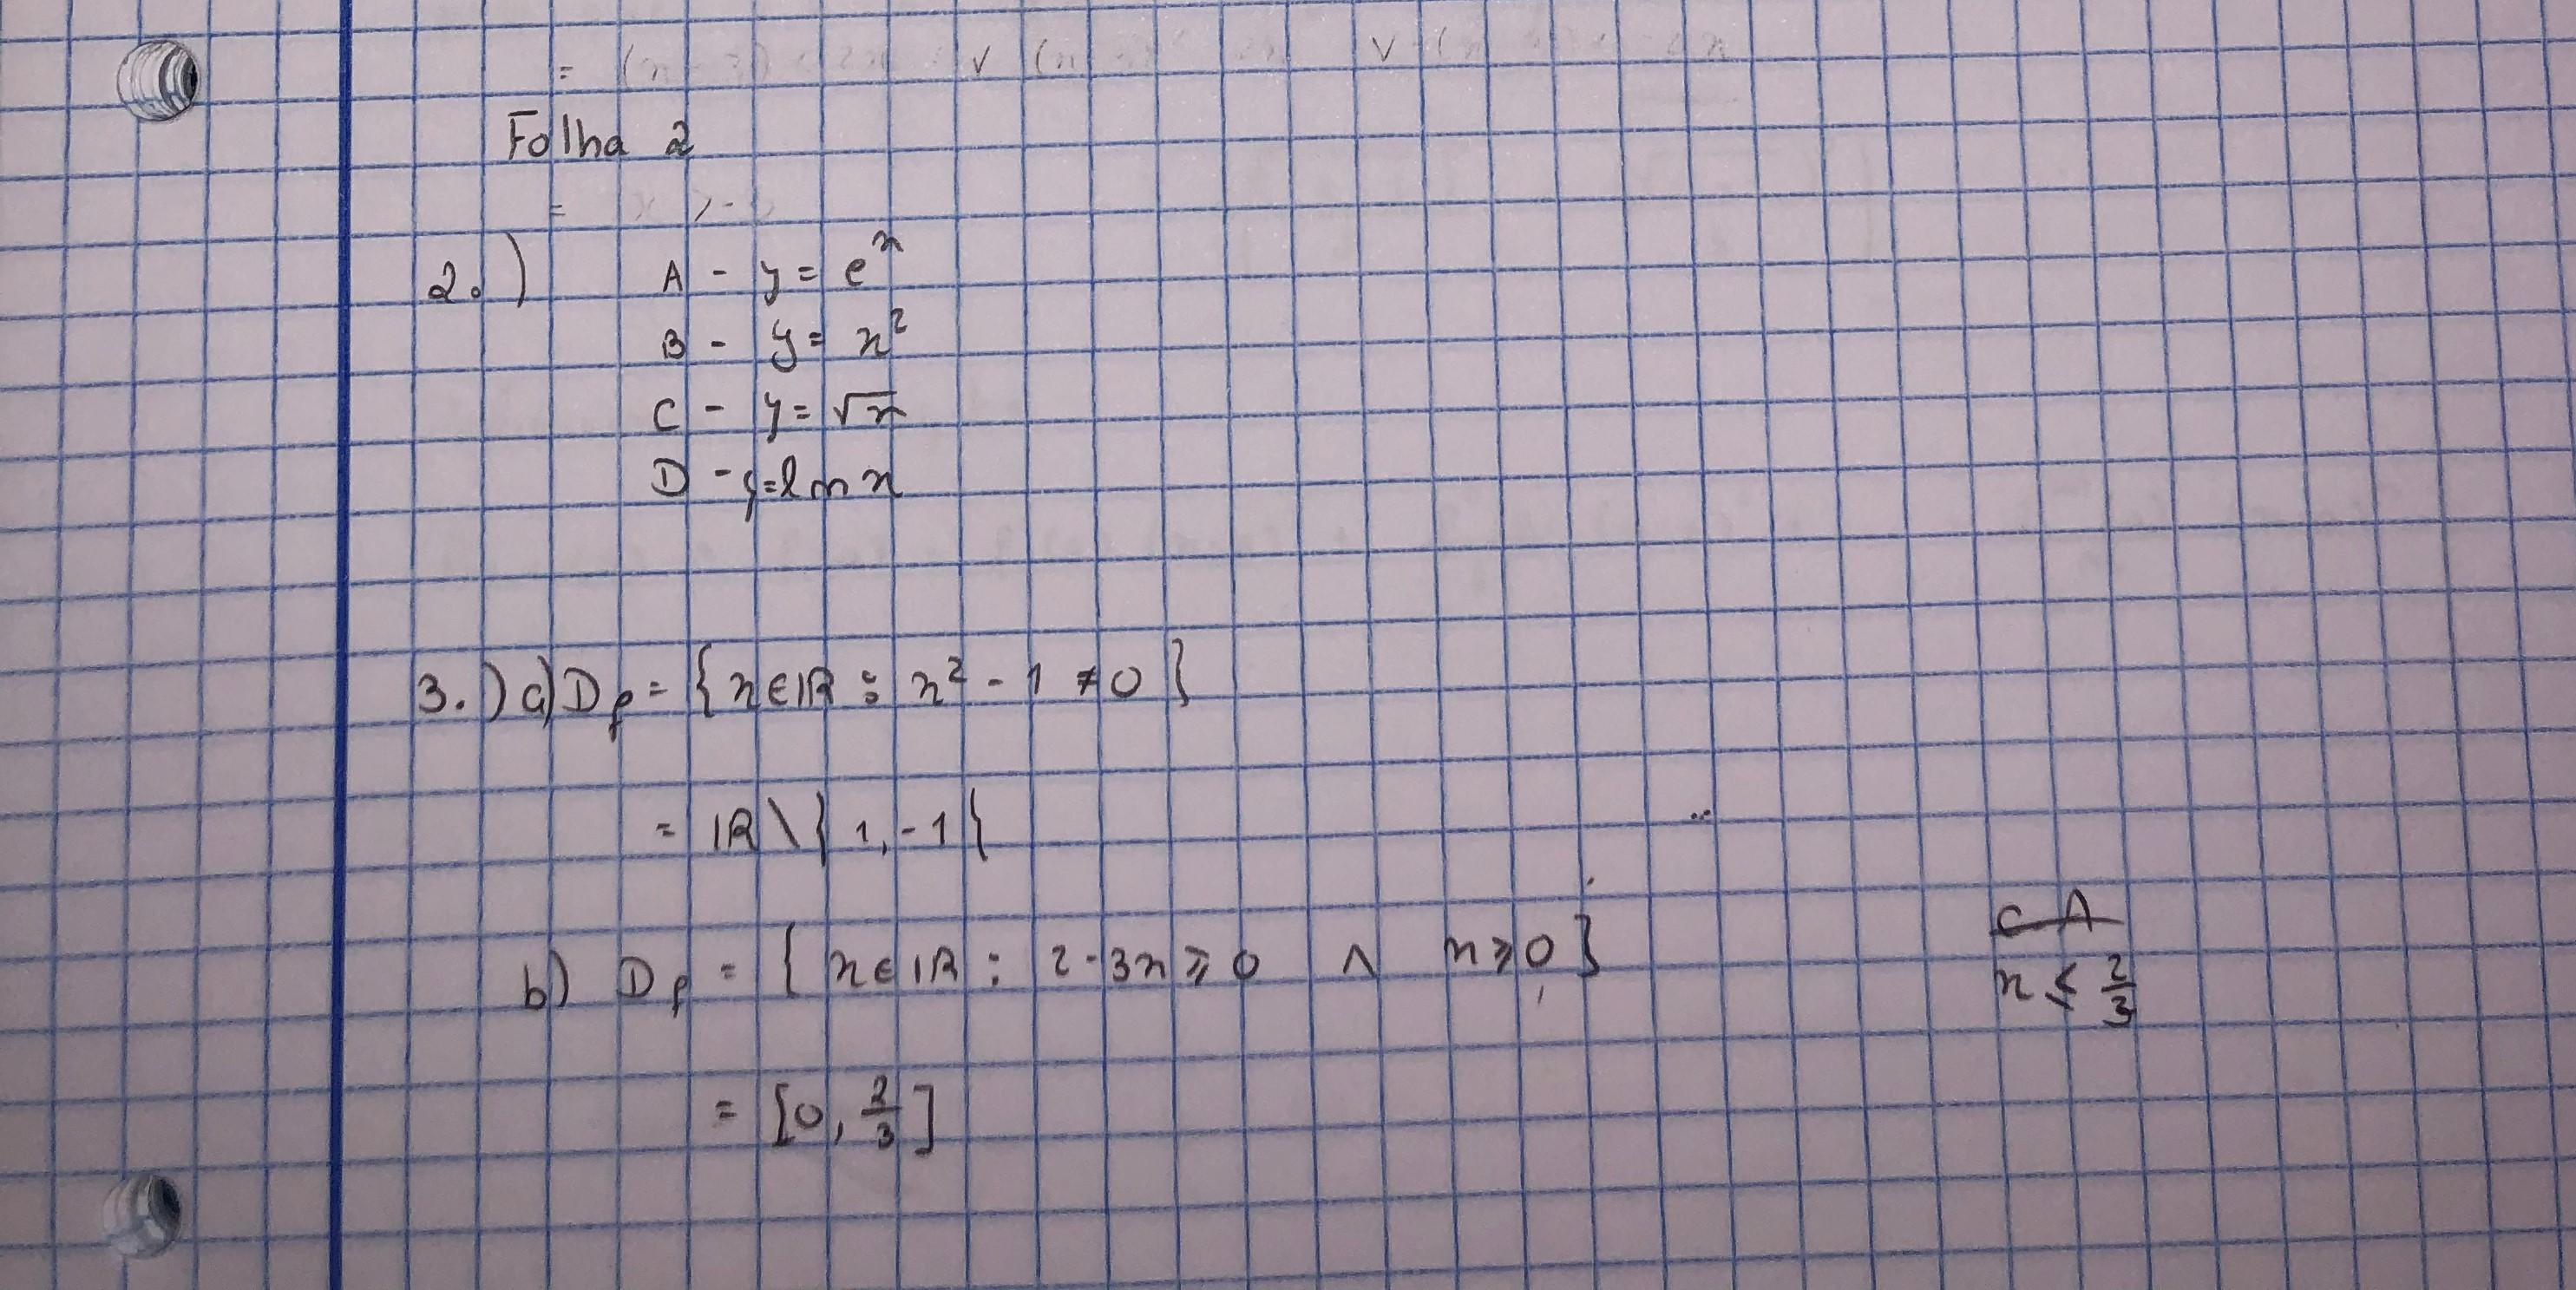 Folha 2
2.) A - y = e^x
B - y = x²
C - y = √x
D - y = ln x
3.) a) D_f = {x ∈ ℝ : x² - 1 ≠ 0}
= ℝ \ {1, -1{
b) D_f = {x ∈ ℝ : 2 - 3x ≥ 0 ∧ x ≥ 0}
CA
x ≤ 2/3
= [0, 2/3]